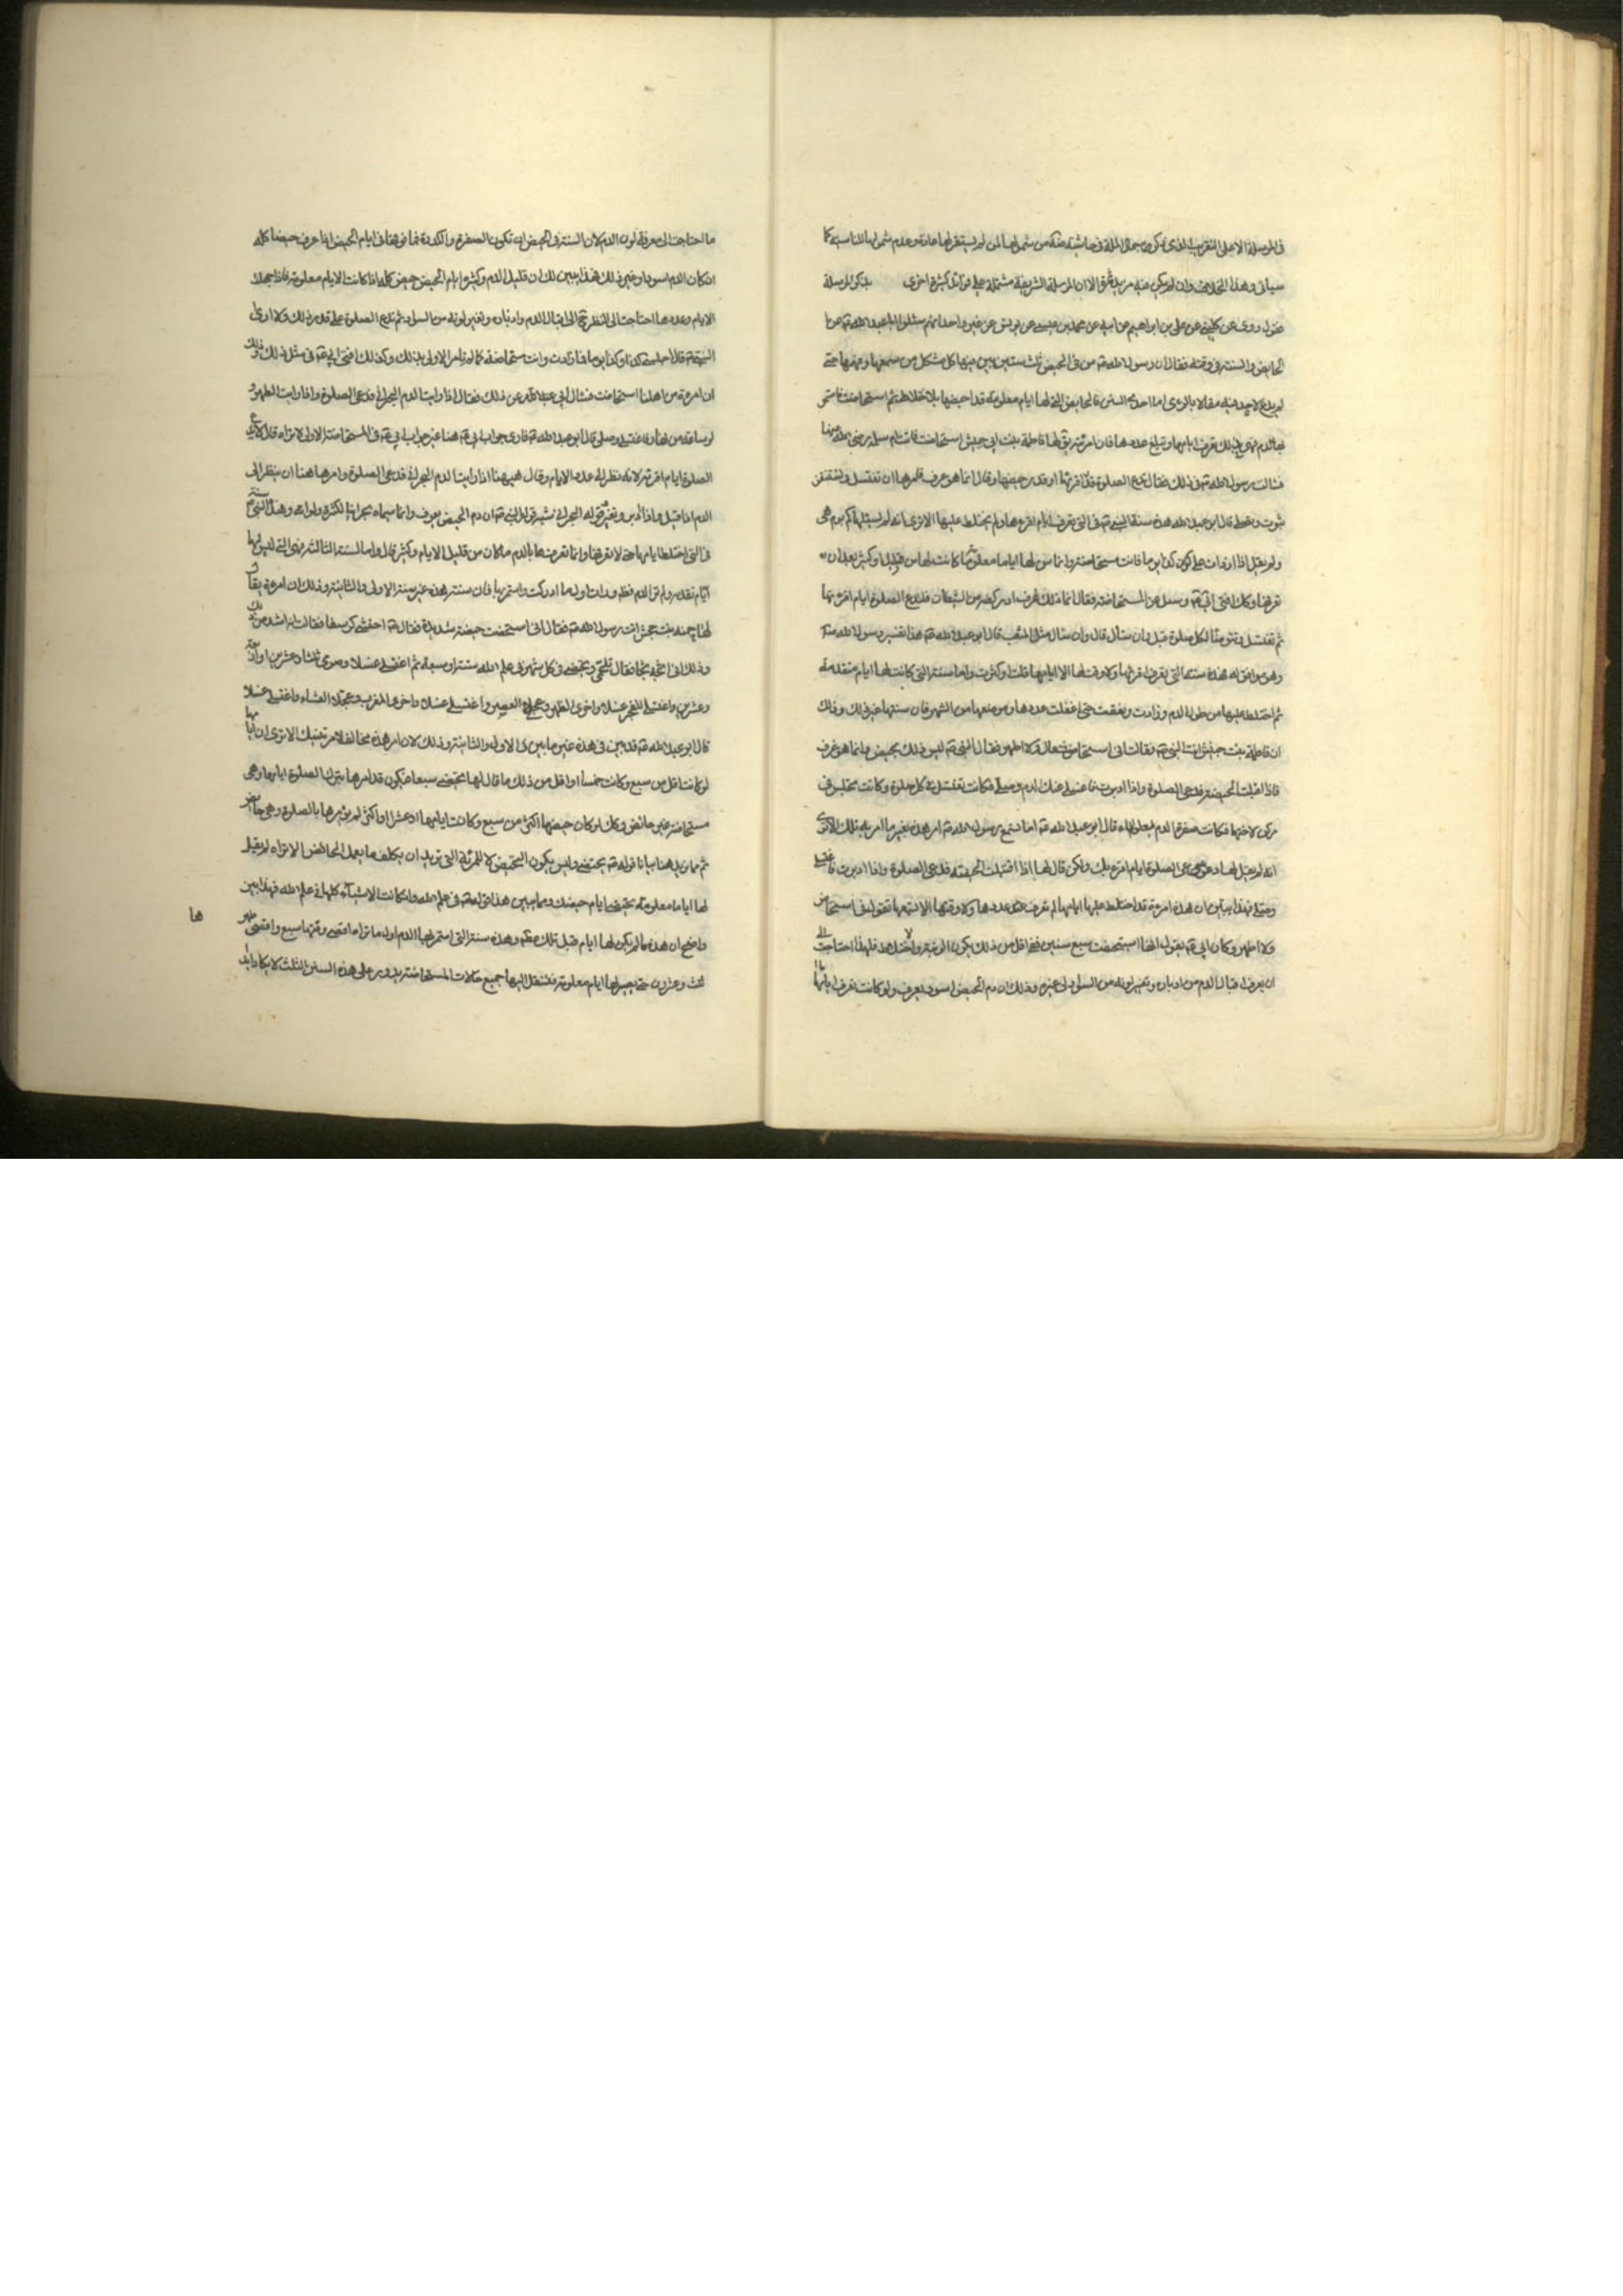 سياتى وهذا الخلاف وان لم يكن فيه مزيد فرق الا ان المرسلة الشريفة مشتملة على فوائد كثيرة اخرى بذكر المرسلة
فنقول روى عن كلينى عن على بن ابراهيم عن ابيه عن محمد بن عيسى عن يونس عن غير واحد انهم سئلوا ابا عبد الله ع عن
الحايض والسنة فى وقته فقال ان رسول الله ص سن فى الحيض ثلث سنن بين فيها كل مشكل من سمعها وفهمها حتى
لم يدع لاحد فيه مقالا بالرى اما احدى السنن فالحايض التى لها ايام معلومة قد احصتها بلا اختلاط ثم استحاضت فاستمر
بها الدم وهى فى ذلك تعرف ايامها ومبلغ عددها فان امرئة يق لها فاطمة بنت ابى حبيش استحاضت فاتت ام سلمة رضى الله عنها
فسالت رسول الله ص فى ذلك فقال تدع الصلوة قدر اقرائها او قدر حيضها وقال انما هو عرف فامرها ان تغتسل وتستثفر
بثوب وتصلى قال ابو عبد الله هذه سنة النبى ص فى التى تعرف ايام اقرءها ولم يختلط عليها الا ترى انه لم يسئلها كم يوم هى
ولم يقل اذا زادت على كون كذا يوما فانت مستحاضة وانما سن لها اياما معلومة ما كانت لها من قليل او كثير بعد ان
تعرفها وكك افتى ابى ع وسئل عن المستحاضة فقال انما ذلك عرف او ركضة من الشيطان فلتدع الصلوة ايام اقرءها
ثم تغتسل وتتوضا لكل صلوة قيل وان سال قال وان سال مثل المثعب قال ابو عبد الله ع هذا تفسير رسول الله ص
وهو موافق له فهذه سنة التى تعرف اقرئها ولا وقت لها الا ايامها قلت او كثرت واما سنة التى كانت لها ايام متقدمة
ثم اختلط عليها من طول الدم وزادت ونقصت حتى اغفلت عددها وموضعها من الشهر فان سنتها غير ذلك وذلك
ان فاطمة بنت حبيش اتت النبى ص فقالت انى استحاض فلا اطهر فقال النبى ص ليس ذلك بحيض وانما هو عرف
فاذا اقبلت الحيضة فدعى الصلوة واذا ادبرت فاغسلى عنك الدم وصلى فكانت تغتسل فى كل صلوة وكانت تجلس فى
مركن لاختها فكانت صفرة الدم يعلو الماء قال ابو عبد الله ع اما تسمع رسول الله ص امر هذه بغير ما امر به تلك الا ترى
انه لم يقل لها دعى الصلوة ايام اقرءك ولكن قال لها اذا اقبلت الحيضة فدعى الصلوة واذا ادبرت فاغتسلى
وصلى فهذا يبين ان هذه امرءة قد اختلط عليها ايامها لم تعرف عددها ولا وقتها الا تسمعها تقول انى استحاض
ولا اطهر وكان ابى ع يقول انها استحيضت سبع سنين ففى اقل من ذلك يكون الريبة والاختلاط فلهذا احتاجت الى
ان يعرف اقبال الدم من ادباره وتغير لونه من السواد الى غيره وذلك ان دم الحيض اسود يعرف ولو كانت تعرف ايامها
ما احتاجت الى معرفة لون الدم لان السنة فى الحيض ان تكون الصفرة والكدرة فما فوقها فى ايام الحيض اذا عرفت حيضا كله
ان كان الدم اسود او غير ذلك فهذا يبين لك ان قليل الدم وكثيره ايام الحيض حيض كله اذا كانت الايام معلومة فاذا جهلت
الايام وعددها احتاجت الى النظر ح الى اقبال الدم وادباره وتغير لونه من السواد ثم تدع الصلوة على قدر ذلك ولا ارى
النبى ص قال اجلسى كذا وكذا يوما فما زادت فانت مستحاضة كما لم تامر الاولى بذلك وكذلك افتى ابى ع فى مثل ذلك وذلك
ان امرءة من اهلنا استحاضت فسالت ابى عن ذلك فقال اذا رايت الدم البحرانى فدعى الصلوة واذا رايت الطهر و
لو ساعة من نهار فاغتسلى وصلى قال ابو عبد الله ع فارى جواب ابى ع هنا غير جوابه فى المستحاضة الاولى الا تراه قال تدع
الصلوة ايام اقرئها لانه نظر الى عدد الايام وقال هيهنا اذا رايت الدم البحرانى فدعى الصلوة وامرها هنا ان ينظر الى
الدم اذا اقبل واذا ادبر وتغير وقوله البحرانى شبه قول النبى ص ان دم الحيض يعرف وانما سماه بحرانيا لكثرته ولونه وهذا سنة النبى ص
فى التى اختلط ايامها حتى لا تعرفها وانما تعرفها بالدم ما كان من قليل الايام وكثيره قال واما السنة الثالثة فهى التى ليس لها
ايام متقدمة ولم تر الدم قط ورات اول ما ادركت واستمر بها فان سنة هذه غير سنة الاولى والثانية وذلك ان امرءة يقال
لها حمنة بنت جحش اتت رسول الله ص فقالت انى استحيضت حيضة شديدة فقال ص احتشى كرسفا فقالت انه اشد من ذلك
وذلك انى اثجه ثجا فقال تلجمى وتحيضى فى كل شهر فى علم الله ستة او سبعة ثم اغتسلى غسلا وصومى ثلثا وعشرين او اربعة
وعشرين واغتسلى للفجر غسلا واخرى الظهر وعجلى العصر واغتسلى غسلا واخرى المغرب وعجلى العشاء واغتسلى غسلا
قال ابو عبد الله ع قد بين فى هذه غير ما بين فى الاولى والثانية وذلك لان امر هذه مخالف لامر تينك الا ترى ان ايامها
لو كانت اقل من سبع وكانت خمسا او اقل من ذلك ما قال لها تحيضى سبعا فيكون قد امرها بترك الصلوة اياما وهى
مستحاضة غير حائض وكك لو كان حيضها اكثر من سبع وكانت ايامها عشرا او اكثر لم يامرها بالصلوة وهى حائض
ثم مما يزيد هذا بيانا قوله ص تحيضى وليس يكون التحيض الا للمرئة التى تريد ان يكلف ما يعمل الحائض الا تراه لم يقل
لها اياما معلومة تحيضى ايام حيضك ومما يبين هذا قوله ص فى علم الله وان كانت الاشياء كلها فى علم الله فهذا بين
واضح ان هذه لم يكن لها ايام قبل تلك قط وهذه سنة التى استمر بها الدم اول ما تراه اقصى وقتها سبع واقصى طهر
ثلث وعشرون حتى يصير لها ايام معلومة فتنتقل اليها جميع حالات المستحاضة يدور على هذه السنن الثلث لا يكاد ابدا
ها